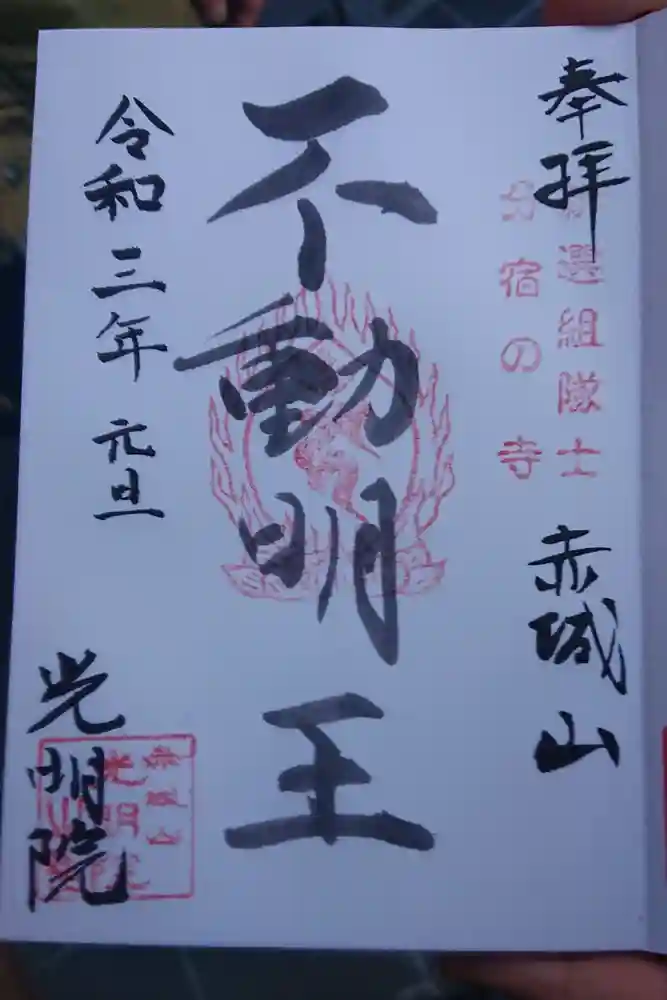 奉拝
新選組隊士
分宿の寺
赤城山
不動明王
令和三年 元旦
光明院
赤城山
光明